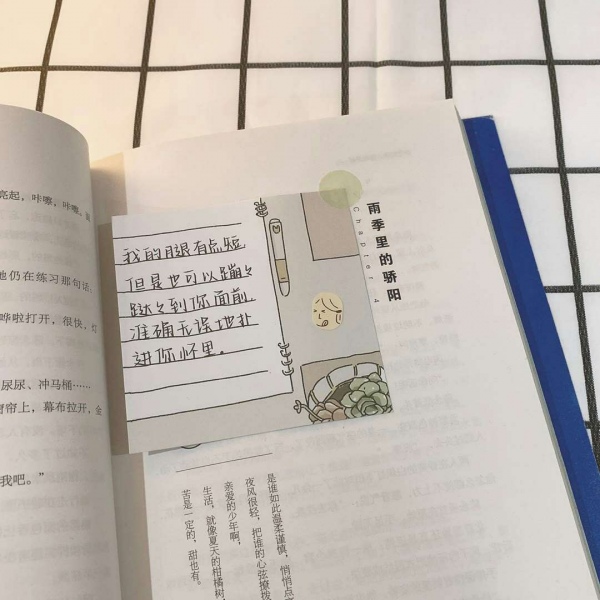 亮起，咔嚓，咔嚓，
他仍在练习那句话，
哗啦打开，很快，灯
尿尿、冲马桶……
帘上，幕布拉开，金
我吧。”
雨季里的骄阳
Chapter 4
我的腿有点短
但是也可以蹦々
跶々到你面前，
准确无误地扑
进你怀里。
是谁如此温柔谨慎，悄悄点
夜风很轻，把谁的心弦撩拨
亲爱的少年啊，
生活，就像夏天的柑橘树
苦是一定的，甜也有。